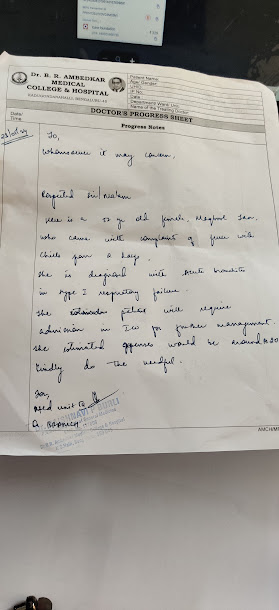 Dr. B. R. AMBEDKAR
MEDICAL
COLLEGE & HOSPITAL
KADUGONDANAHALLI, BENGALURU-45
Patient Name
Age/ Gender
UHID
IP No.
Date
Department/ Ward/ Unit
Name of the Treating Doctor
DOCTOR'S PROGRESS SHEET
Date/
Time
Progress Notes
To,
Whomsoever it may concern,
Respected Sir/Madam
Here is a yr old female,
who came with complaint of fever with
chills from days.
She is diagnosed with Acute bronchitis
in type I respiratory failure.
The patient will require
admission in ICU for further management.
The estimated expenses would be around
Kindly do the needful.
Med unit